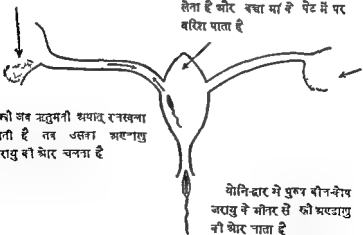 लेता है और बच्चा मां के पेट में पर
वरिश पाता है
स्त्री जब ऋतुमती अर्थात् रजस्वला
होती है तब उसका अण्डाणु
जरायु की ओर चलता है
योनि-द्वार में पुरुष बीज-कोष
जरायु के भीतर से स्त्री अण्डाणु
की ओर जाता है